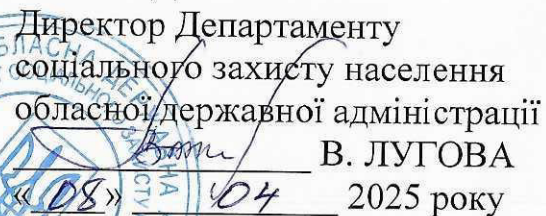 Директор Департаменту
соціального захисту населення
обласної державної адміністрації
В. ЛУГОВА
« 08 » 04 2025 року